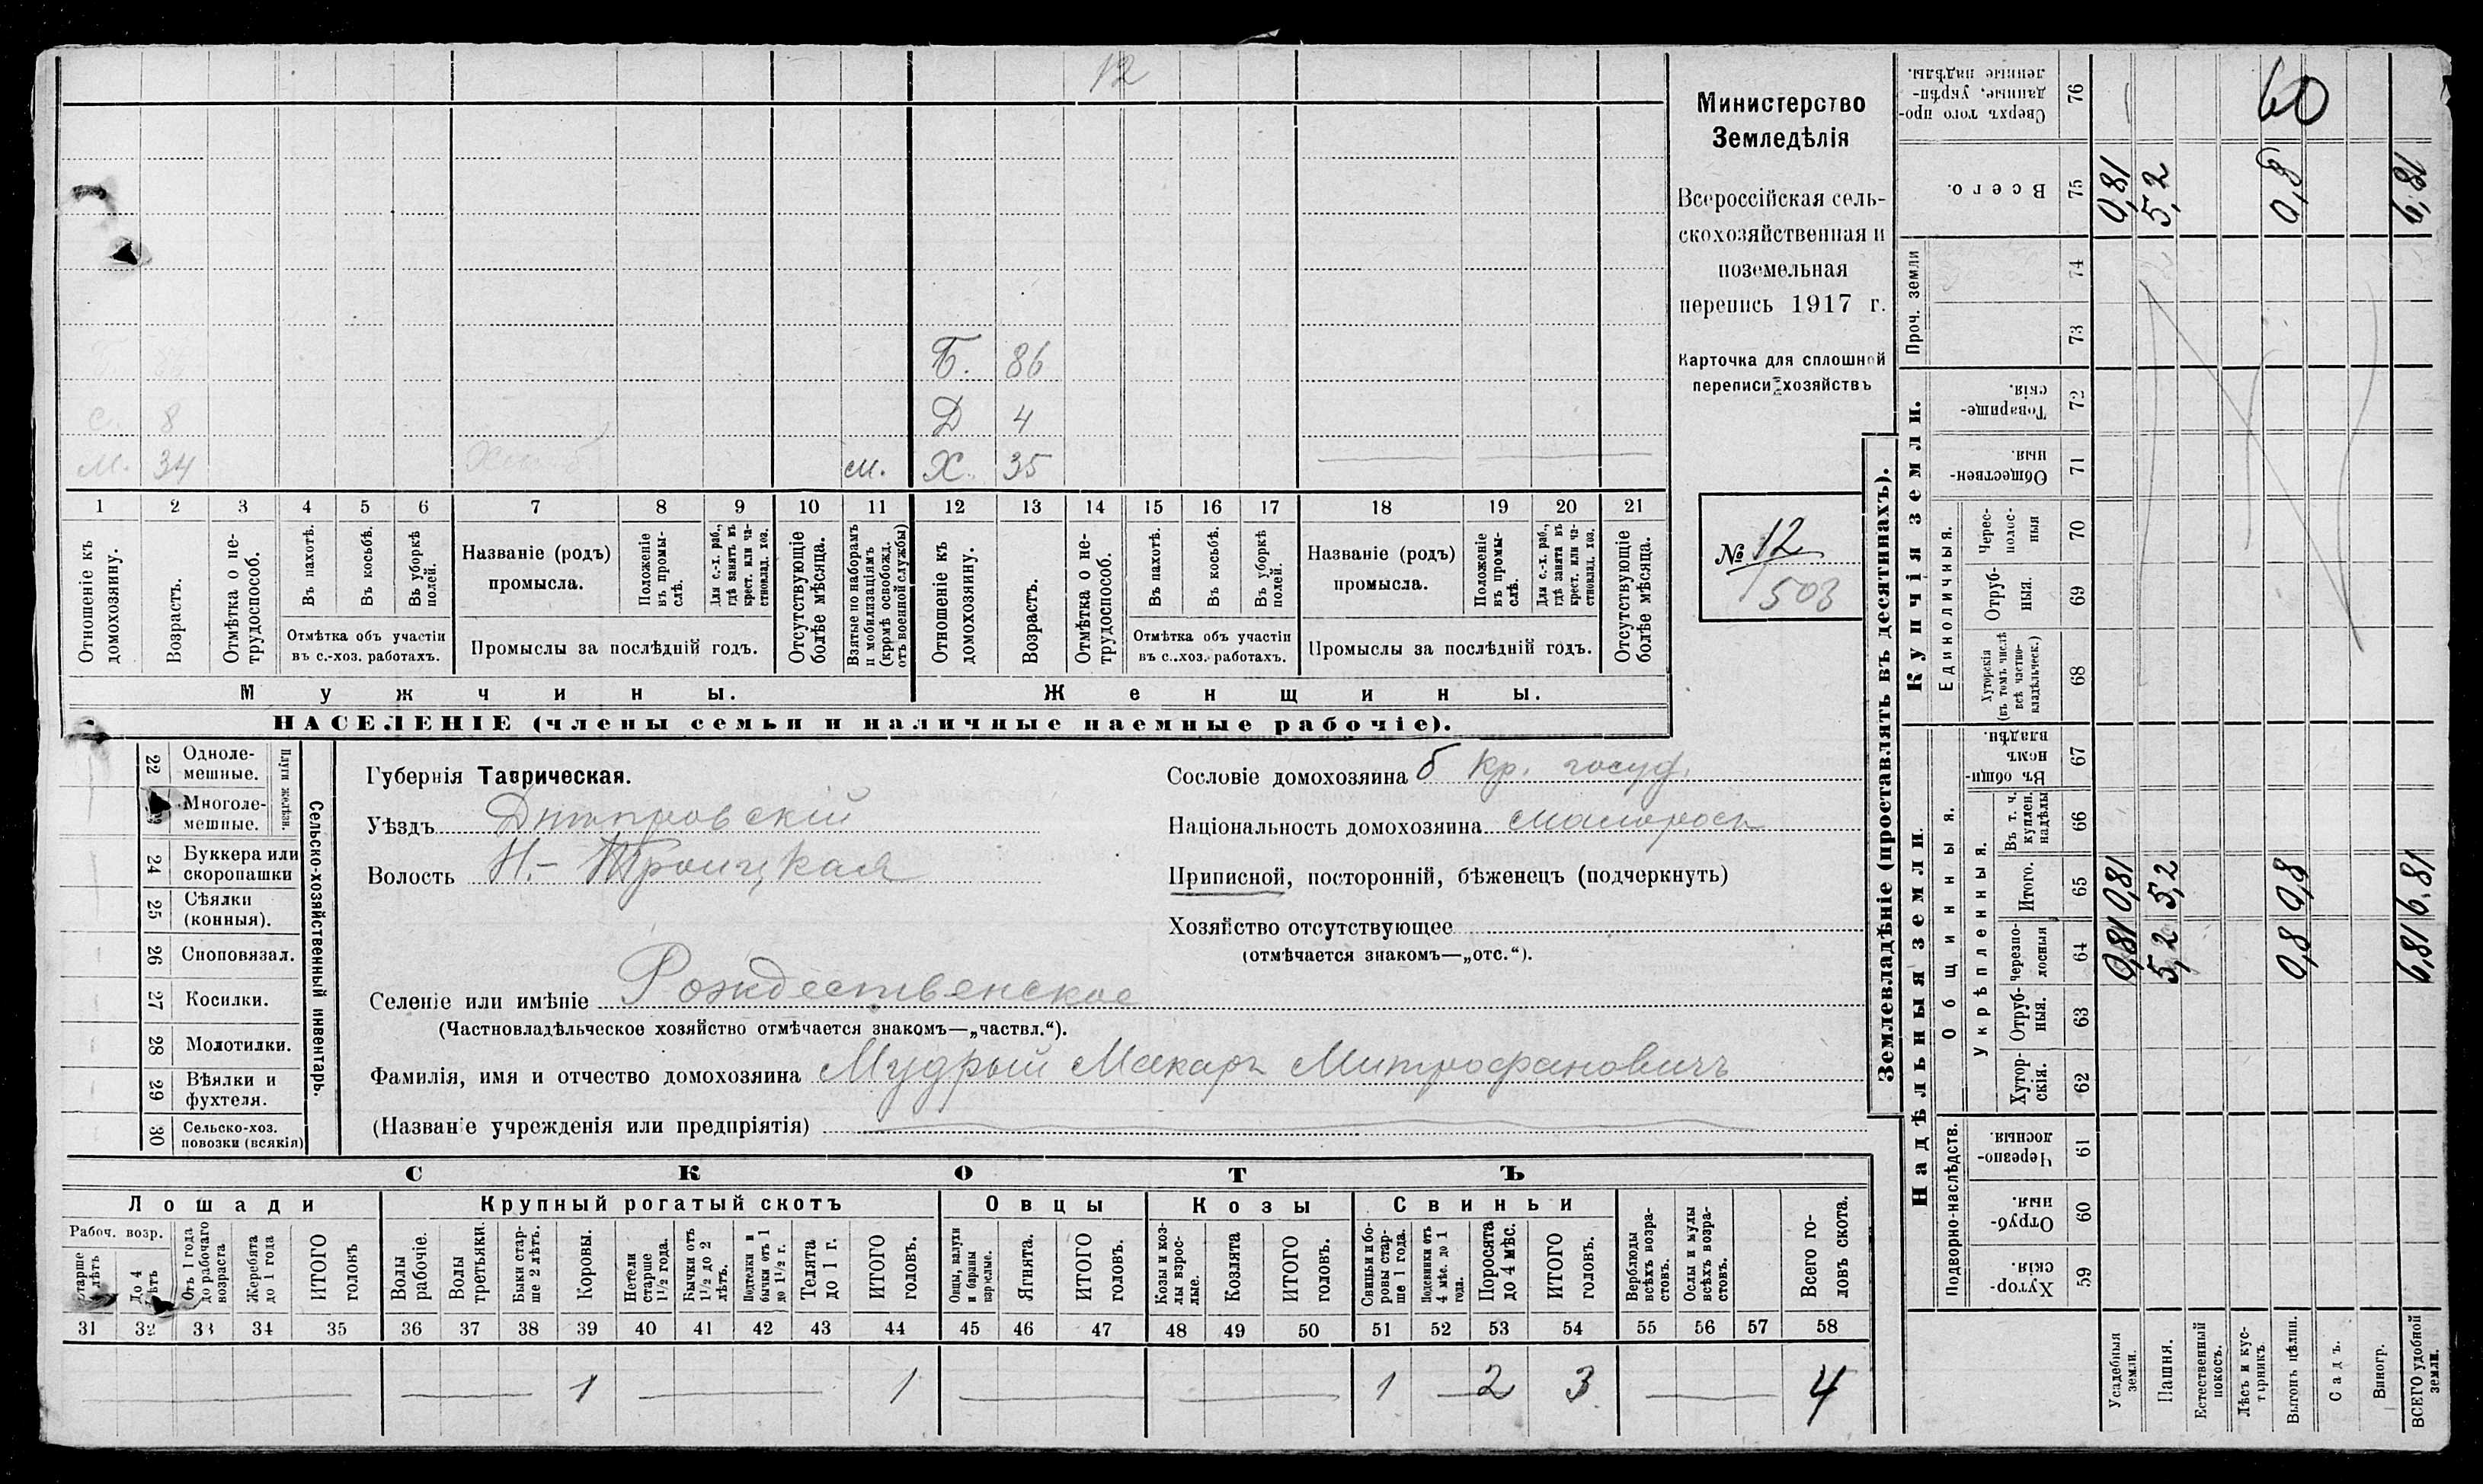 12
Б. 86
С. 8 Д 4
М. 34 м. Х. 35
1 2 3 4 5 6 7 8 9 10 11 12 13 14 15 16 17 18 19 20 21
Отношеніе къ домохозяину.
Возрастъ.
Отмѣтка о не-трудоспособ.
Въ пахотѣ.
Въ косьбѣ.
Въ уборкѣ полей.
Отмѣтка объ участіи
въ с.-хоз. работахъ.
Названіе (родъ)
промысла.
Положеніе въ промы-слѣ.
Для с.-х. раб., гдѣ занятъ въ крест. или ча-стновлад. хоз.
Промыслы за послѣдній годъ.
Отсутствующіе болѣе мѣсяца.
Взятые по наборамъ и мобилизаціямъ (кромѣ освобожд. отъ военной службы)
Отношеніе къ домохозяину.
Возрастъ.
Отмѣтка о не-трудоспособ.
Въ пахотѣ.
Въ косьбѣ.
Въ уборкѣ полей.
Отмѣтка объ участіи
въ с.-хоз. работахъ.
Названіе (родъ)
промысла.
Положеніе въ промы-слѣ.
Для с.-х. раб., гдѣ занята въ крест. или ча-стновлад. хоз.
Промыслы за послѣдній годъ.
Отсутствующіе болѣе мѣсяца.
Мужчины. Женщины.
НАСЕЛЕНІЕ (члены семьи и наличные наемные рабочіе).
Министерство
Земледѣлія
Всероссійская сель-
скохозяйственная и
поземельная
перепись 1917 г.
Карточка для сплошной
переписи хозяйствъ
№ 12
503
Сельско-хозяйственный инвентарь.
Плуги желѣзн.
22 Одноле-
мешные.
Многоле-
мешные.
24 Буккера или
скоропашки
25 Сѣялки
(конныя).
26 Сноповязал.
27 Косилки.
28 Молотилки.
29 Вѣялки и
фухтеля.
30 Сельско-хоз.
повозки (всякія)
Губернія Таврическая.
Уѣздъ Днѣпровскій
Волость Н.-Троицкая
Сословіе домохозяина б кр. госуд.
Національность домохозяина малороссъ
Приписной, посторонній, бѣженецъ (подчеркнуть)
Хозяйство отсутствующее
(отмѣчается знакомъ—„отс.“).
Селеніе или имѣніе Рождественское
(Частновладѣльческое хозяйство отмѣчается знакомъ—„частвл.“).
Фамилія, имя и отчество домохозяина Мудрый Макаръ Митрофановичъ
(Названіе учрежденія или предпріятія)
СКОТЪ
Лошади Крупный рогатый скотъ Овцы Козы Свиньи
Рабоч. возр.
Старше 4 лѣтъ
До 4 лѣтъ
Отъ 1 года до рабочаго возраста
Жеребята до 1 года
ИТОГО головъ
Волы рабочіе.
Волы третьяки.
Быки стар-ше 2 лѣтъ.
Коровы.
Нетели старше 1½ года.
Бычки отъ 1½ до 2 лѣтъ.
Подтелки и бычки отъ 1 до 1½ г.
Телята до 1 г.
ИТОГО головъ.
Овцы, валухи и бараны взрослые.
Ягнята.
ИТОГО головъ.
Козы и коз-лы взрос-лые.
Козлята
ИТОГО головъ.
Свиньи и бо-ровы стар-ше 1 года.
Подсвинки отъ 4 мѣс. до 1 года.
Поросята до 4 мѣс.
ИТОГО головъ.
Верблюды всѣхъ возра-стовъ.
Ослы и мулы всѣхъ возра-стовъ.
Всего го-ловъ скота.
31 32 33 34 35 36 37 38 39 40 41 42 43 44 45 46 47 48 49 50 51 52 53 54 55 56 57 58
1 1 1 2 3 4
Землевладѣніе (проставлять въ десятинахъ).
Купчія земли.
Надѣльныя земли.
Проч. земли
Единоличныя.
Общинныя.
Укрѣпленныя.
Подворно-наслѣдств.
76 Сверхъ того про-данные, укрѣп-ленные надѣлы.
75 Всего.
74
73
72 Товарище-скія.
71 Обществен-ныя.
70 Черес-полос-ныя
69 Отруб-ныя.
68 Хуторскія (въ томъ числѣ всѣ частно-владѣльческ.)
67 Въ общи-номъ владѣн.
66 Въ т. ч. куплен. надѣлы
65 Итого.
64 Черезпо-лосныя
63 Отруб-ныя.
62 Хутор-скія.
61 Черезпо-лосныя.
60 Отруб-ныя.
59 Хутор-скія.
Усадебныя земли. 0,81 0,81 0,81
Пашня. 5,2 5,2 5,2
Естественный покосъ.
Лѣсъ и кус-тарникъ.
Выгонъ цѣлин. 0,8 0,8 0,8 60
Садъ.
Виногр.
ВСЕГО удобной земли. 6,81 6,81 6,81